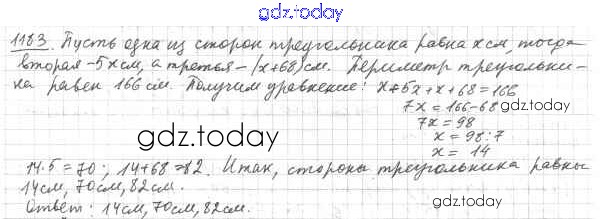 gdz.today
1183. Пусть одна из сторон треугольника равна x см, тогда
вторая - 5x см, а третья - (x+68) см. Периметр треугольни-
ка равен 166 см. Получим уравнение: x+5x+x+68=166
7x = 166-68
gdz.today
7x = 98
gdz.today
x = 98:7
x = 14
14·5=70; 14+68=82. Итак, стороны треугольника равны
14см, 70см, 82см.
gdz.today
Ответ: 14см, 70см, 82см.